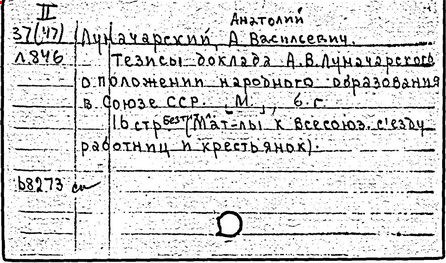 II
Анатолий
37(47) Луначарский, А. Васильевич.
Л846 Тезисы доклада А.В.Луначарского
о положении народного образования
в Союзе ССР. М., б.г.
16 стр. (Мат-лы к Всесоюз. съезду
работниц и крестьянок).
b8273